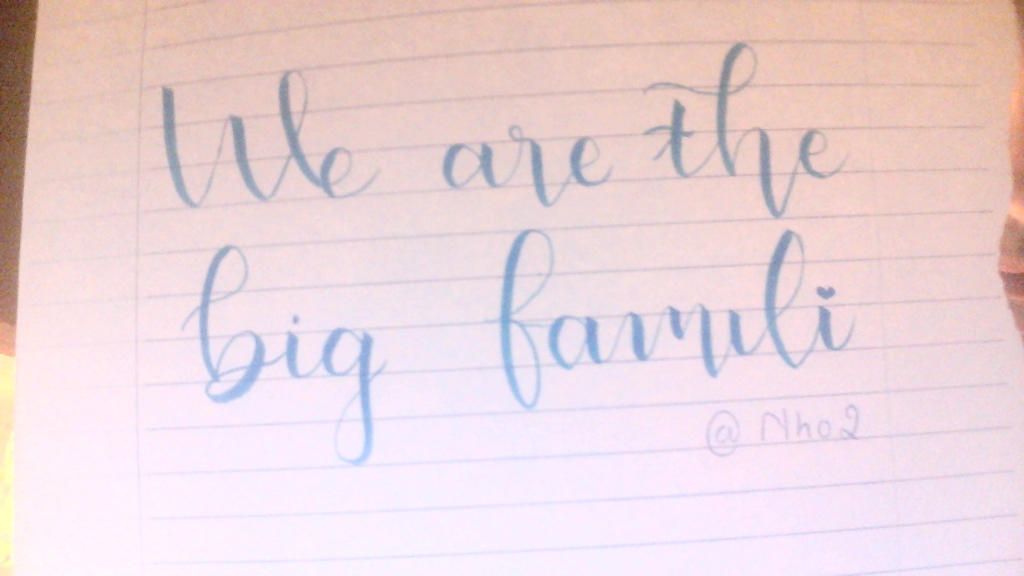 We are the
big famili
@Nho2